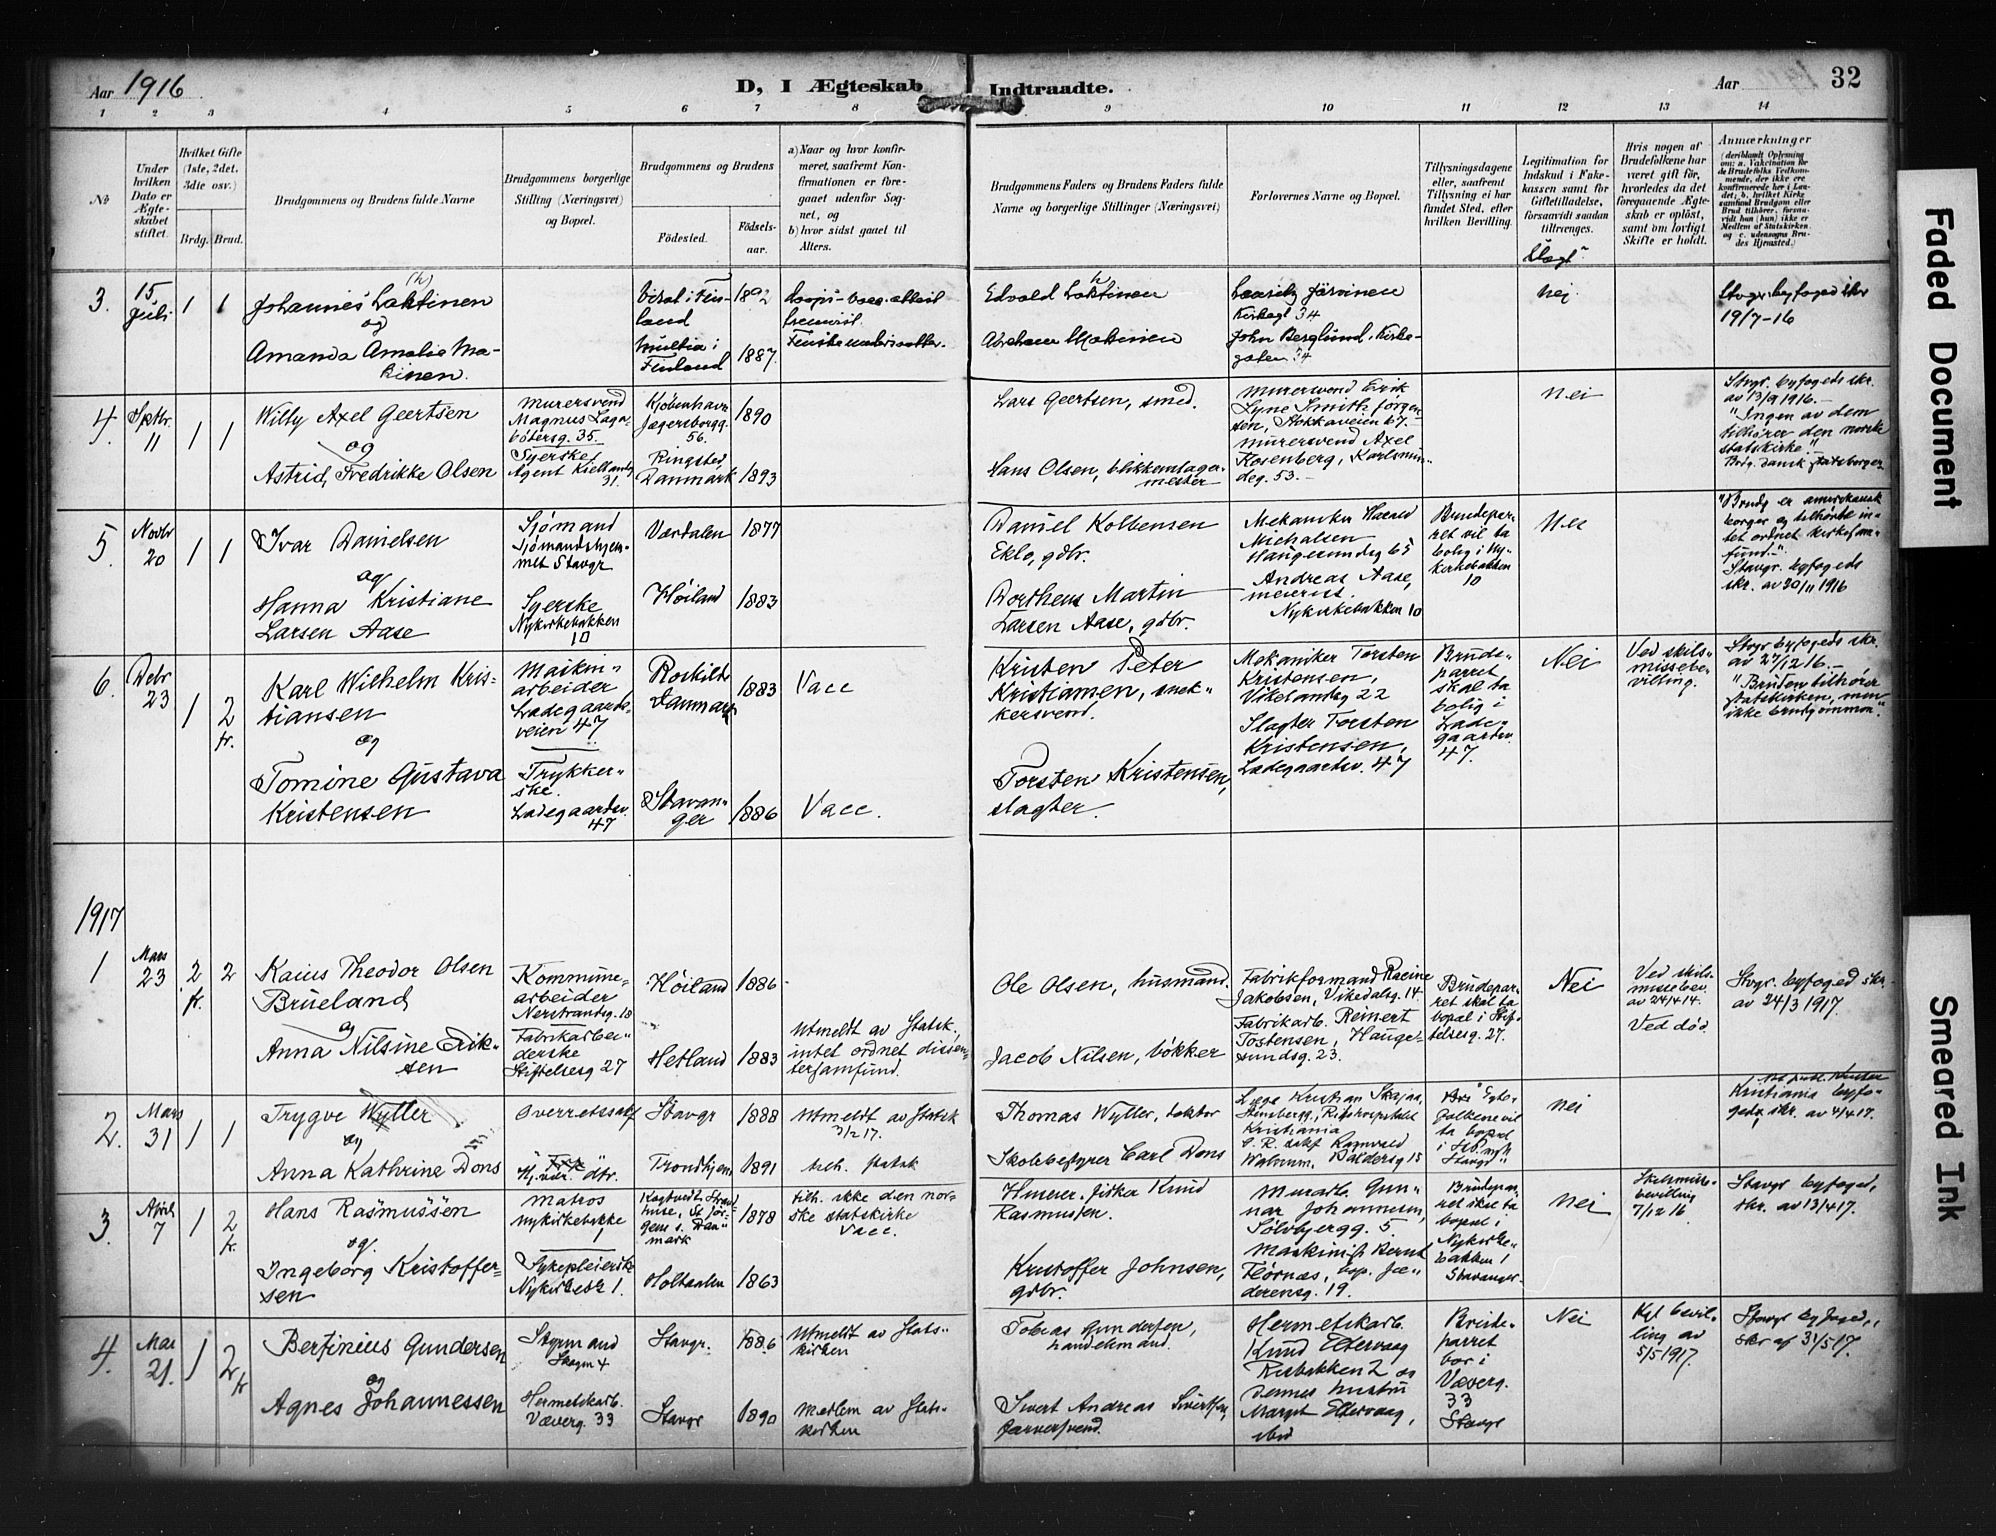 Aar 1916
D, I Ægteskab Indtraadte.
Aar
32
1 2 3 4 5 6 7 8 9 10 11 12 13 14
№
Under hvilken Dato er Ægteskabet stiftet.
Hvilket Gifte (1ste, 2det. 3die osv.)
Brdg. Brud.
Brudgommens og Brudens fulde Navne
Brudgommens borgerlige Stilling (Næringsvei) og Bopæl.
Brudgommens og Brudens
Fødested.
Fødsels-aar.
a) Naar og hvor konfir-
meret, saafremt Kon-
firmationen er fore-
gaaet udenfor Sog-
net, og
b) hvor sidst gaaet til
Alters.
Brudgommens Faders og Brudens Faders fulde
Navne og borgerlige Stillinger (Næringsvei)
Forlovernes Navne og Bopæl.
Tillysningsdagene
eller, saafremt
Tillysning ei har
fundet Sted, efter
hvilken Bevilling.
Legitimation for
Indskud i Enke-
kassen samt for
Giftetilladelse,
forsaavidt saadan
tiltrænges.
Hvis nogen af
Brudefolkene har
været gift før,
hvorledes da det
foregaaende Ægte-
skab er opløst,
samt om lovligt
Skifte er holdt.
Anmærkninger
3.
15 Juli
1 1
Johannes Laktinen
(h)
og
Amanda Amalie Ma-
kinen.
i Fin-
land
Multia i
Finland
1892
1887.
Edvald Laktinen
Abraham Makinen
Järvinen
Kirkegt 34
John Berglund, Kirke-
gaten 34
Slægt
Nej.
Stvgr. byfoged skr
19/7-16
4.
Septbr. 11
1 1
Willy Axel Geertsen
og
Astrid, Fredrikke Olsen
Murersvend
Magnus Laga-
bøtersg. 35.
Syerske
Agent Kiellandsg
31.
Kjøbenhavn
Jægersborgg.
56.
Ringsted,
Danmark
1890
1893
Lars Geertsen, smed.
Hans Olsen, blikkenslager-
mester
Murersvend Erik
Lyne Smith Jørgen-
sen, Stokkaveien 67.
Murersvend Axel
Rosenberg, Karlsmin-
deg. 53.
Nei
Stvgr. byfogeds skr.
av 13/9 1916.
"Ingen av dem
tilhører den norske
statskirke."
Brdg. dansk statsborger
5.
Novbr 20
1 1
Ivar Danielsen
og
Hanna Kristiane
Larsen Aase
Sjømand
Sjømandshjem-
met Stavgr
Syerske
Nykirkebakken
10
Værdalen
Høiland
1877
1883
Daniel Kolbensen
Eklo, gdbr.
Dortheus Martin
Larsen Aase, gdbr.
Mekaniker Harald
Michalsen
Haugesundsg 65
Andreas Aase,
meierist.
Nykirkebakken 10
Brudepar-
ret vil ta
bolig i Ny-
kirkebakken
10
Nei
"Brudg er amerikansk
borger og tilhørte in-
tet ordnet kirkesam-
fund."
Stavgr. byfogeds
skr. av 20/11 1916
6.
Decbr. 23
1 2 fr.
Karl Wilhelm Kris-
tiansen
og
Tomine Gustava
Kristensen
Maskin-
arbeider
Ladegaards-
veien 47
Trykker-
ske.
Ladegaardsv.
47
Roskilde
Danmark
Stavan-
ger
1883
1886
Vacc
Vacc.
Kristen Peter
Kristiansen, snek-
kersvend.
Torsten Kristensen,
slagter.
Mekaniker Torsten
Kristensen,
Vikedalsg 22
Slagter Torsten
Kristensen,
Ladegaardsv. 47
Brude-
parret
skal ta
bolig i
Lade-
gaardsv.
47.
Nei
Ved skils-
missebe-
villing.
Stvgr byfogeds skr.
av 27/12 16.
"Bruden tilhører
statskirken, men
ikke brudgommen".
1917
1
Mars 23
2 fr. 2
Kaius Theodor Olsen
Brueland
og
Anna Nilsine Erik-
sen
Kommune-
arbeider
Nerstrandsg. 18
Fabrikarbei-
derske
Stiftelsesg 27
Høiland
Hetland
1886
1883
Utmeldt av Statsk.,
intet ordnet dissen-
tersamfund.
Ole Olsen, husmand.
Jacob Nilsen, bøkker
Fabrikformand Racine
Jakobsen, Vikedalsg. 14.
Fabrikarb. Reinert
Tostensen, Hauge-
sundsg. 23.
Brudepar-
ret skal ta
bopæl i Stif-
telsesg. 27.
Nei
Ved skils-
missebev.
av 24/4 14.
Ved død.
Stvgr. byfoged skr.
av 24/3 1917.
2.
Mars 31
1 1
Trygve Wyller
og
Anna Kathrine Dons
Overretssakf
Hj.vær. dtr.
Stavgr
Trondhjem
1888
1891
Utmeldt av Statsk
3/2 17.
tilh. statsk
Thomas Wyller, doktor
Skolebestyrer Carl Dons
Læge Kristian Skajaa,
Rikshospitalet
Kristiania
O. R. sakf Ragnvald
Baldersg 15
i Stvgr
nei
Kristiania byfo-
geds skr. av 4/4 17.
3.
April 7
1 2 fr.
Hans Rasmussen
og.
Ingeborg Kristoffer-
sen
Matros
Nykirkebakke
1
Sykepleierske
Nykirkebk 1.
Dan-
mark
Holtaalen
1878
1863
tilh. ikke den nor-
ske statskirke
Vacc.
fisker Knud
Rasmussen.
Kristoffer Johnsen,
gdbr.
Murarb. Gun-
nar Johannesen,
Sølvbjergg. 5.
Maskinist Bernt
Flørnæs, bop. Jæ-
derensg. 19.
Brudepar-
ret skal ta
bopæl i
Nykirke-
bakken 1
Stavanger.
Nei
Skilsmisse-
bevilling
7/12 16
Stavgr byfoged,
skr. av 13/4 17.
4.
Mai 21.
1 2 fr
Bertinius Gundersen
og
Agnes Johannessen
Styrmand
Skagen 4
Hermetikarb.
Væverg. 33
Stavgr.
Stavgr
1886
1890
Utmeldt av Stats-
kirken
Medlem av Stats-
kirken
Tobias Gundersen,
handelsmand.
Sivert Andreas Sivertsen,
garversvend.
Hermetikarb.
Knud Eltervaag
Risbakken 2 og
dennes hustru
Margit Eltervaag,
ibid
Brude-
parret
bor i
Væverg.
33
Stavgr
Nei
Kgl bevil-
ling av
5/5 1917.
Stavgr byfoged,
skr af 31/5 17.
Faded Document
Smeared Ink